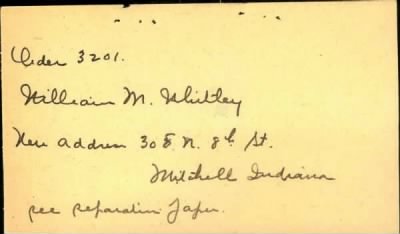 Order 3201.
William M. Whitley
New address 308 N. 8th St.
Mitchell Indiana
see separation Paper.